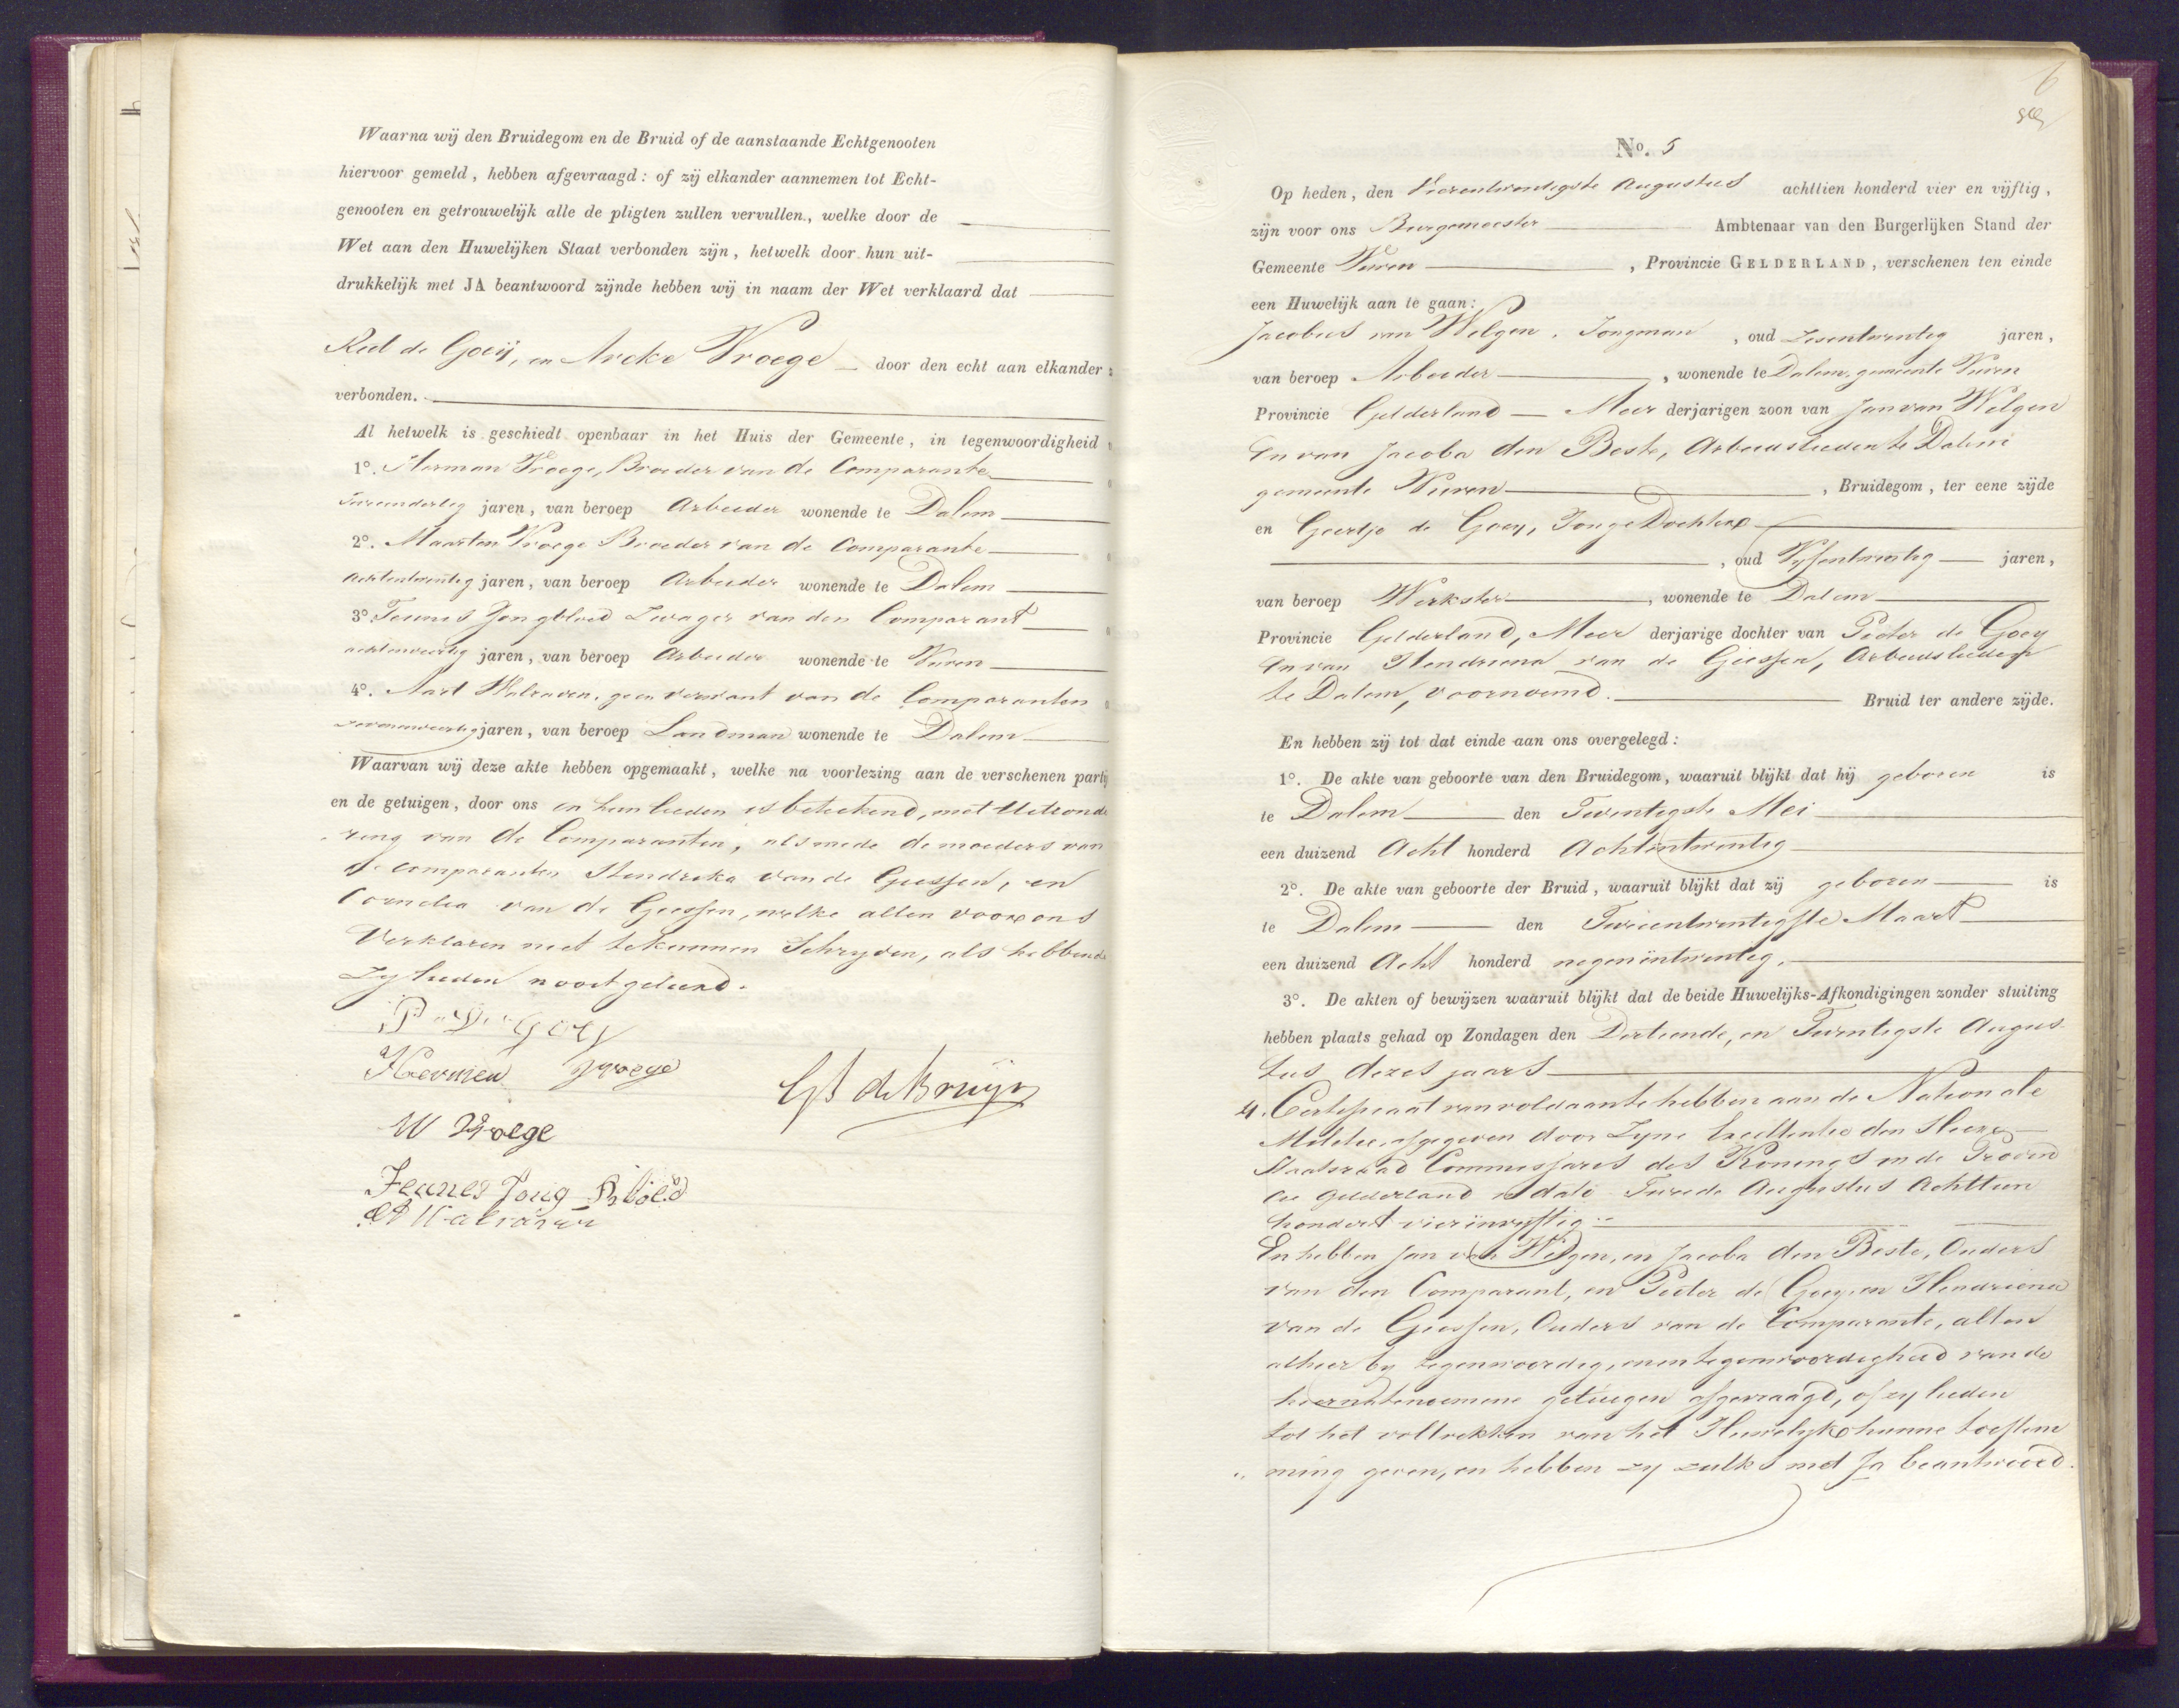 Waarna wij den Bruidegom en de Bruid of de aanstaande Echtgenooten
hiervoor gemeld, hebben afgevraagd: of zij elkander aannemen tot Echt-
genooten en getrouwelijk alle de pligten zullen vervullen, welke door de
Wet aan den Huwelijken Staat verbonden zijn, hetwelk door hun uit-
drukkelijk met JA beantwoord zijnde hebben wij in naam der Wet verklaard dat
de Goeij, en Vroege door den echt aan elkander
verbonden.
Al hetwelk is geschiedt openbaar in het Huis der Gemeente, in tegenwoordigheid
1º. Herman Vroege, Broeder van de Comparante
jaren, van beroep Arbeider wonende te Dalem
2º. Maarten Vroege Broeder van de Comparante
achtentwintig jaren, van beroep Arbeider wonende te Dalem
3º Teunis Jongbloed Zwager van den Comparant
achtenveertig jaren, van beroep Arbeider wonende te Vuren
4º. Aart Walraven, geen verwant van de Comparanten
jaren, van beroep Landman wonende te Dalem
Waarvan wij deze akte hebben opgemaakt, welke na voorlezing aan de verschenen partij
en de getuigen, door ons en hun lieden is beteekend, met Uitzonde
ring van de Comparanten, alsmede de moeders van
de comparanten Hendreka van de Giessen, en
Cornelia van de Giessen, welke allen voor ons
Verklaren niet te kunnen Schryven, als hebbende
Zy lieden nooit geleerd.
P D Goey
Hermen Vroege
GB de Bruijn
M Vroege
Teunes Jong Bloed
A Walraven
6
No. 5
Op heden, den Vierentwintigste Augustus achttien honderd vier en vijftig,
zijn voor ons Burgemeester Ambtenaar van den Burgerlijken Stand der
Gemeente Vuren, Provincie GELDERLAND, verschenen ten einde
een Huwelijk aan te gaan:
Jacobus van Wilgen, Jongman, oud Zesentwintig jaren,
van beroep Arbeider, wonende te Dalem, gemeente Vuren
Provincie Gelderland Meer derjarigen zoon van Jan van Wilgen
En van Jacoba den Beste, Arbeidslieden te Dalem
gemeente Vuren, Bruidegom, ter eene zijde
en Geertje de Goey, Jonge Dochter
, oud Vyfentwintig jaren,
van beroep Werkster, wonende te Dalem
Provincie Gelderland, Meer derjarige dochter van Pieter de Goey
En van Hendriena van de Giessen, Arbeidslieden
te Dalem, voornoemd. Bruid ter andere zijde.
En hebben zij tot dat einde aan ons overgelegd:
1º. De akte van geboorte van den Bruidegom, waaruit blijkt dat hij geboren is
te Dalem den Twintigste Mei
een duizend Acht honderd Achtentwintig
2º. De akte van geboorte der Bruid, waaruit blijkt dat zij geboren is
te Dalem den Tweeentwintigste Maart
een duizend Acht honderd negenintwentig.
3º. De akten of bewijzen waaruit blijkt dat de beide Huwelijks-Afkondigingen zonder stuiting
hebben plaats gehad op Zondagen den Dertiende, en Twintigste Augus
tus dezes jaars
4. Certificaat van voldaan te hebben aan de Nationale
Militie, afgegeven door Zyne Excellentie den Heere
Staatsraad Commissaris des Konings in de Provin
cie Gelderland in dato Tweede Augustus Achttien
hondert vierinvyftig
En hebben Jan van Wilgen, en Jacoba den Beste, Ouders
van den Comparant, en Pieter de Goey en Hendriena
van de Giessen, Ouders van de Comparante, allen
alhier by tegenwoordig, en in tegenwoordigheid van de
hiernatenoemene getuigen afgevraagd, of zy lieden
tot het voltrekken van het Huwelyk hunne toestem
ming geven, en hebben zy zulks met Ja beantwoord.